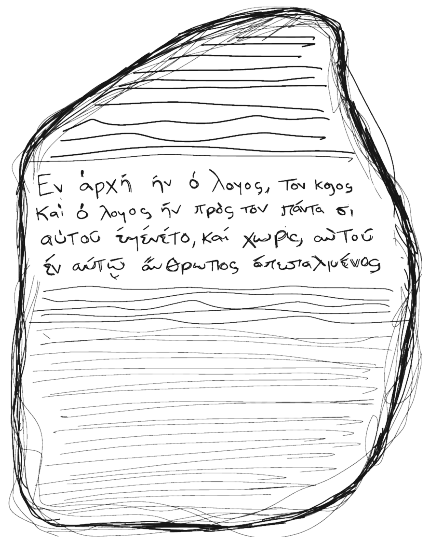 Εν ἀρχῇ ἦν ὁ λογος, τον κολος
Καὶ ὁ λογος ἦν πρὸς τον πάντα σι
αὐτοῦ ἐγένετο, καί χωρις αὐτοῦ
ἐν αὐτῷ ἄνθρωπος ἀπεσταλμένος